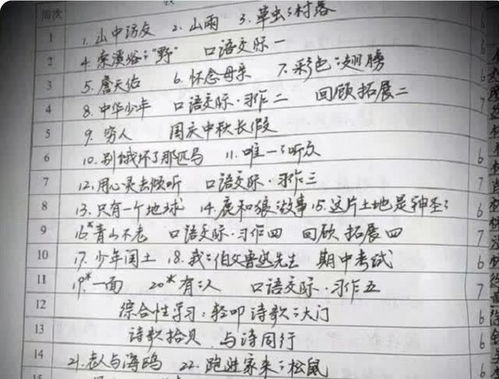 周次
1 1.山中访友 2.山雨 3.草虫的村落 6
2 4.索溪峪的"野" 口语交际一 6
3 5.詹天佑 6.怀念母亲 7.彩色的翅膀 6
4 8.中华少年 口语交际·习作二 回顾拓展二 6
5 9.穷人 国庆中秋长假 6
6 10.别饿坏了那匹马 11.唯一的听众 6
7 12.用心灵去倾听 口语交际·习作三 6
8 13.只有一个地球 14.鹿和狼的故事 15.这片土地是神圣的 6
9 16*青山不老 口语交际·习作四 回顾拓展四 6
10 17.少年闰土 18.我的伯父鲁迅先生 期中考试 6
11 19*一面 20*有的人 口语交际·习作五 6
12 综合性学习:轻叩诗歌的大门 6
13 诗歌拾贝 与诗同行 6
14 21.老人与海鸥 22.跑进家来的松鼠 6
15